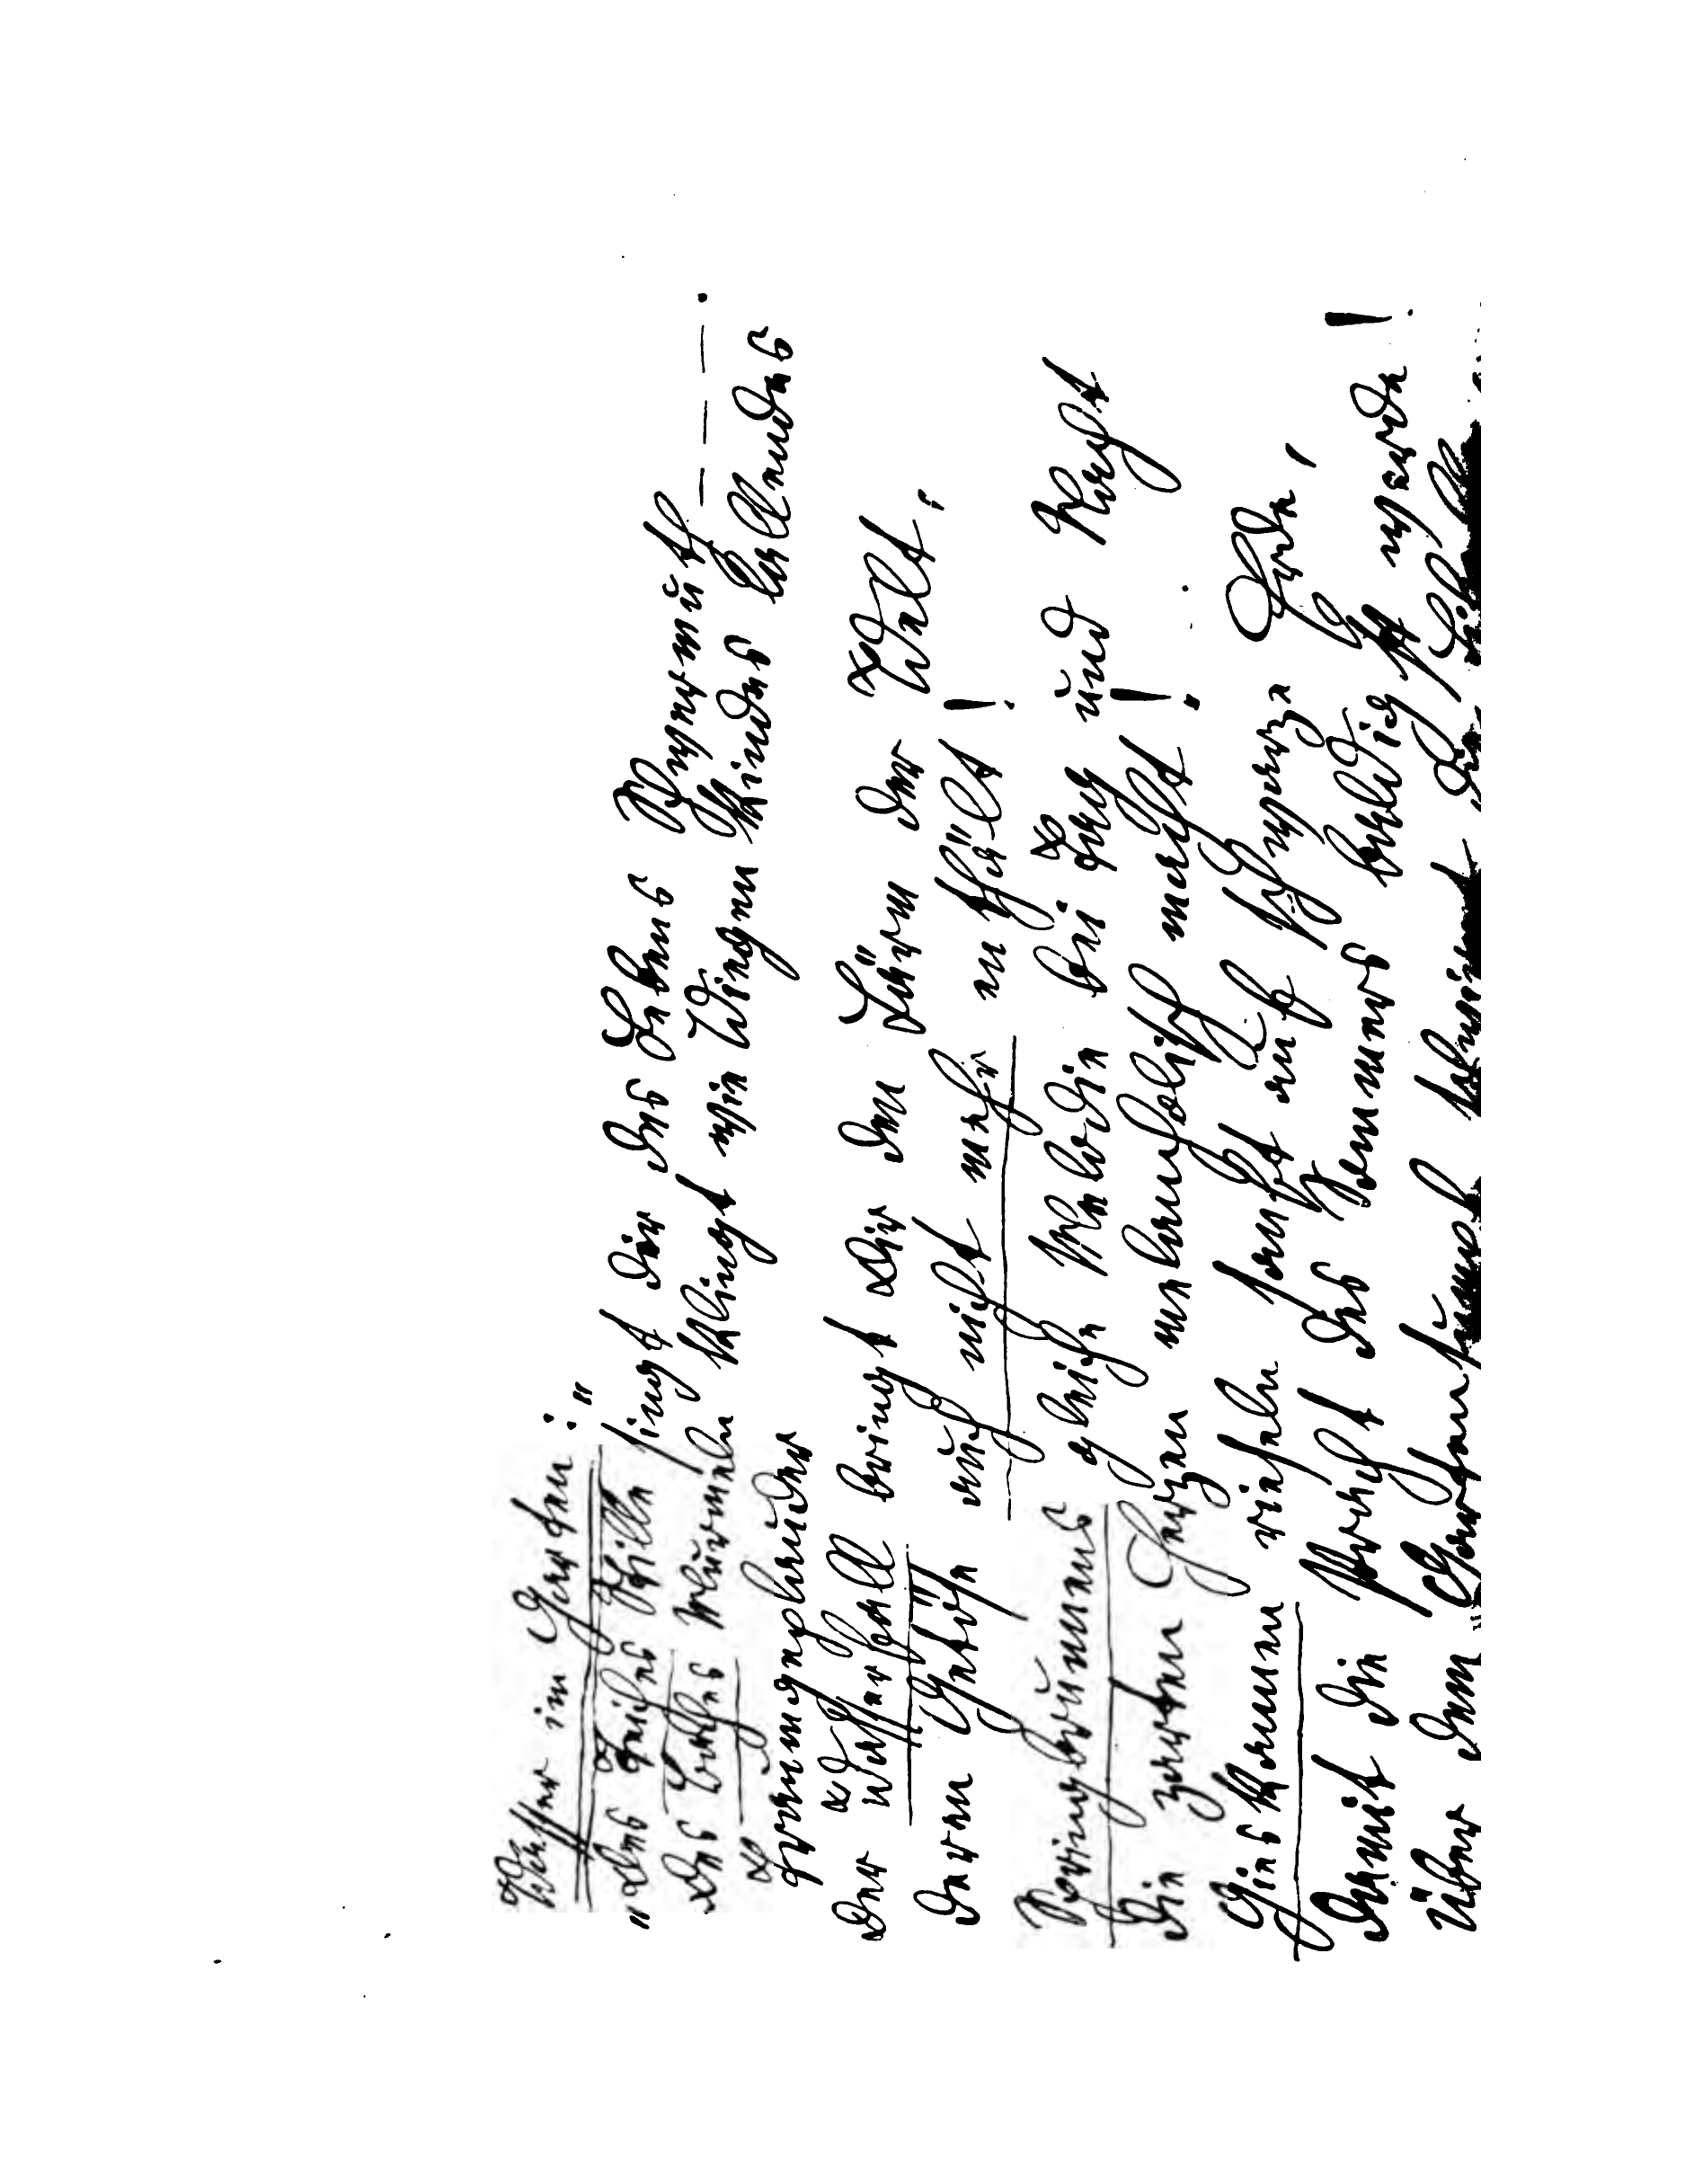 Wasser im Garten:"
"Des Teiches Stille singt dir des Lebens Schwermuth
Des Baches Murmeln klingt wie Wiegen Kindes lallendes – – – .
Traumgeplauder
Der Wasserfall bringt Dir den Lärm der Welt,
Deren Getöse auch nicht mehr enthält!
Springbrunnens gleiche Melodie bei Tag und Nacht
Die zarten Herzen melancholisch macht!
Gieskannen rieseln sanft auf's schwarze Erde,
Damit die Pracht des Sommers baldigst werde!
Über dem Gartensumpf schwirrt die Libelle